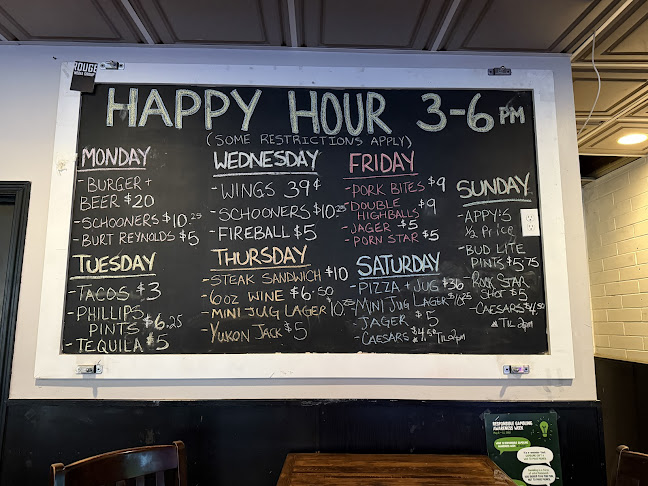 ROUGE
MEDIA GROUP
HAPPY HOUR 3-6 PM
(SOME RESTRICTIONS APPLY)
MONDAY
- BURGER +
BEER $20
- SCHOONERS $10.25
- BURT REYNOLDS $5
TUESDAY
- TACOS $3
- PHILLIPS
PINTS $6.25
- TEQUILA $5
WEDNESDAY
- WINGS 39¢
- SCHOONERS $10.25
- FIREBALL $5
THURSDAY
- STEAK SANDWICH $10
- 6oz WINE $6.50
- MINI JUG LAGER $10.25
- YUKON JACK $5
FRIDAY
- PORK BITES $9
- DOUBLE
HIGHBALLS $9
- JAGER $5
- PORN STAR $5
SATURDAY
- PIZZA + JUG $36
- MINI JUG LAGER $10.25
- JAGER $5
- CAESARS $4.50 TIL 2pm
SUNDAY
- APPY'S
½ PRICE
- BUD LITE
PINTS $5.75
- ROCK STAR
SHOT $5
- CAESARS $4.50
TIL 2pm
RESPONSIBLE GAMBLING
AWARENESS WEEK